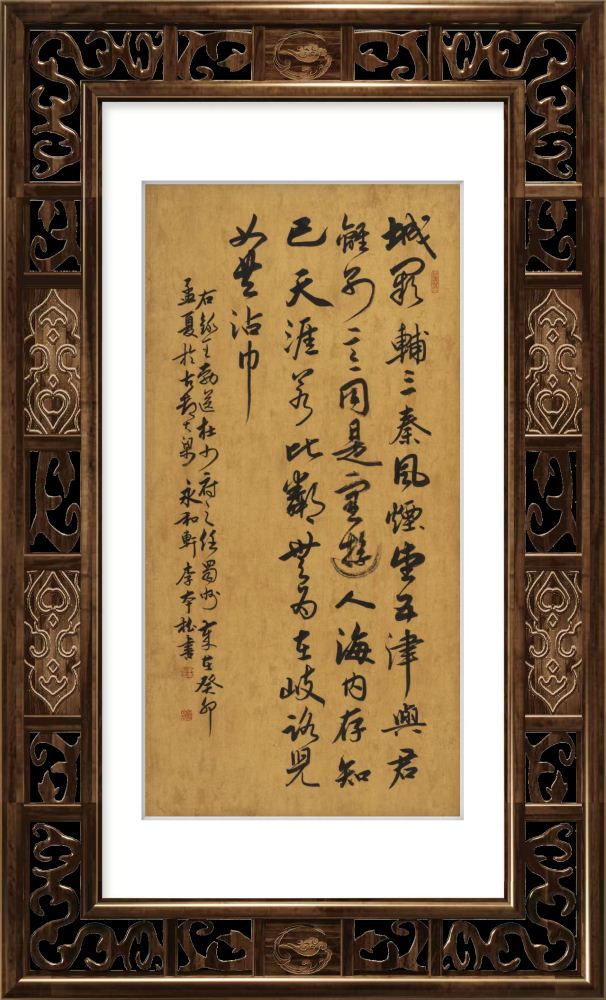 城闕輔三秦風煙望五津與君
離別意同是宦遊人海內存知
己天涯若比鄰無為在岐路兒
女共沾巾
右錄王勃送杜少府之任蜀州歲在癸卯
孟夏於古都大梁永和軒李本書